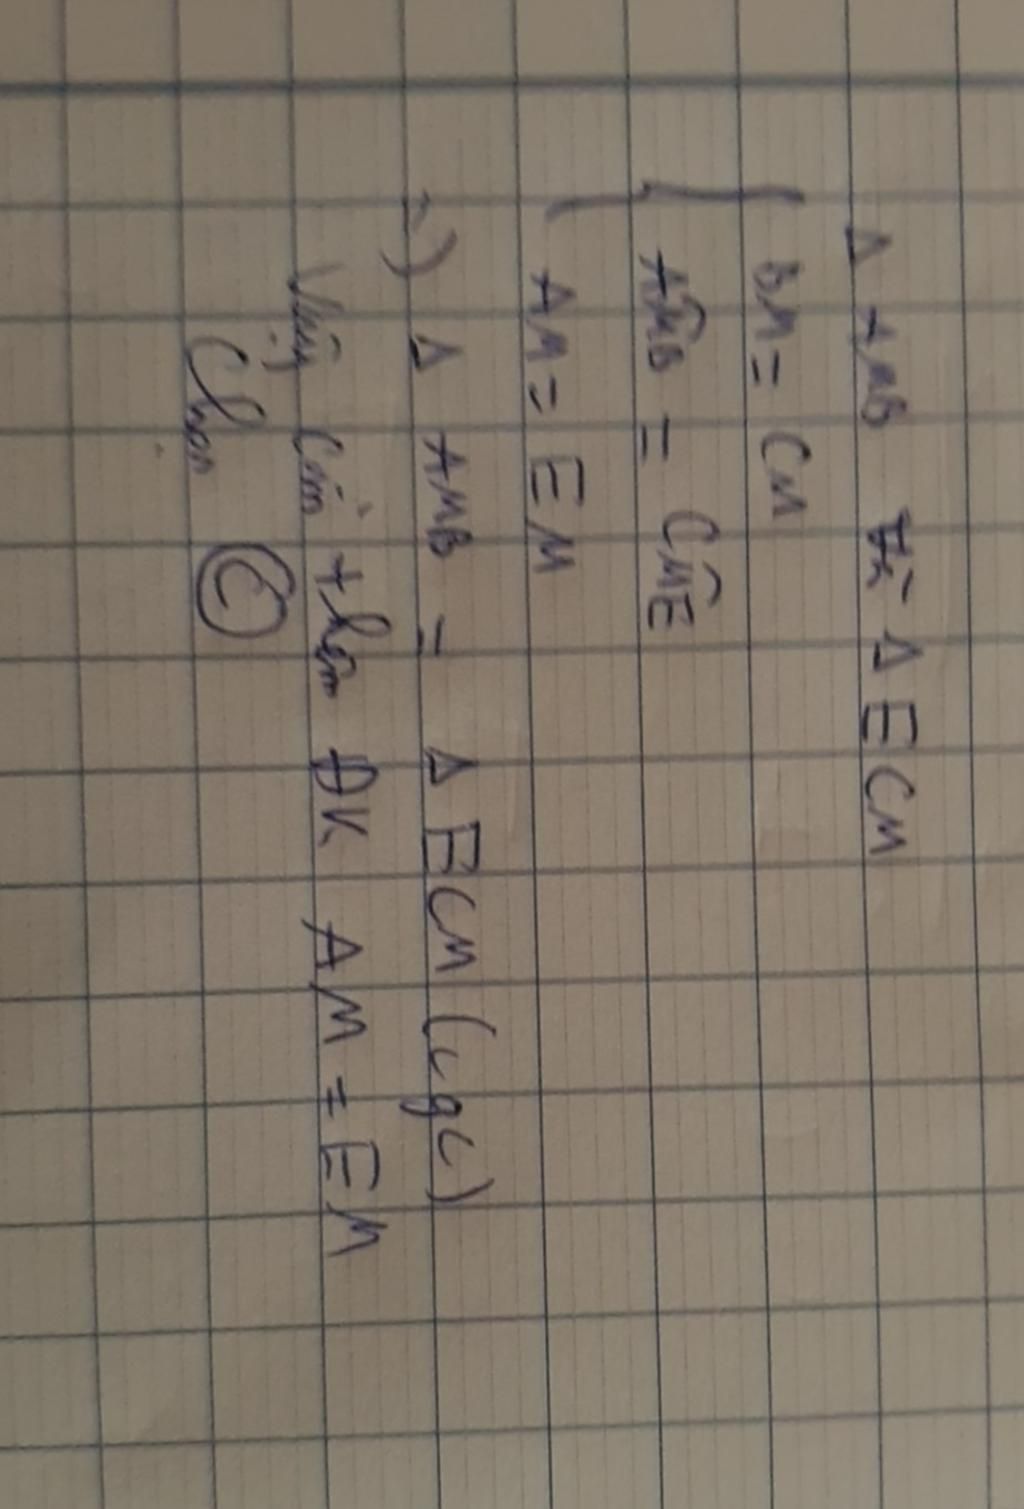 Δ AMB và Δ ECM
BM = CM
AM̂B = CM̂E
AM = EM
=) Δ AMB = Δ ECM (cgc)
Vậy cần thêm ĐK AM = EM
Chọn C